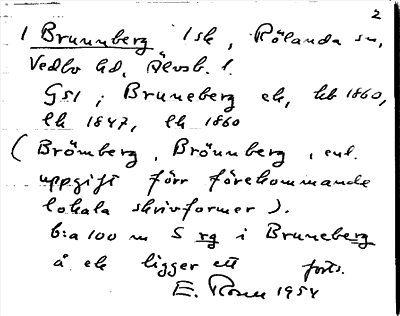 2
1 Brunnberg 1 sk, Rölanda sn,
Vedbo hd, Älvsb. l.
GS1; Bruneberg ek, hb 1860,
lk 1847, lk 1860
(Brömberg, Brönnberg, enl.
uppgift förr förekommande
lokala skrivformer).
b:a 100 m S rg i Bruneberg
å ek ligger ett forts.
E. Rosen 1954